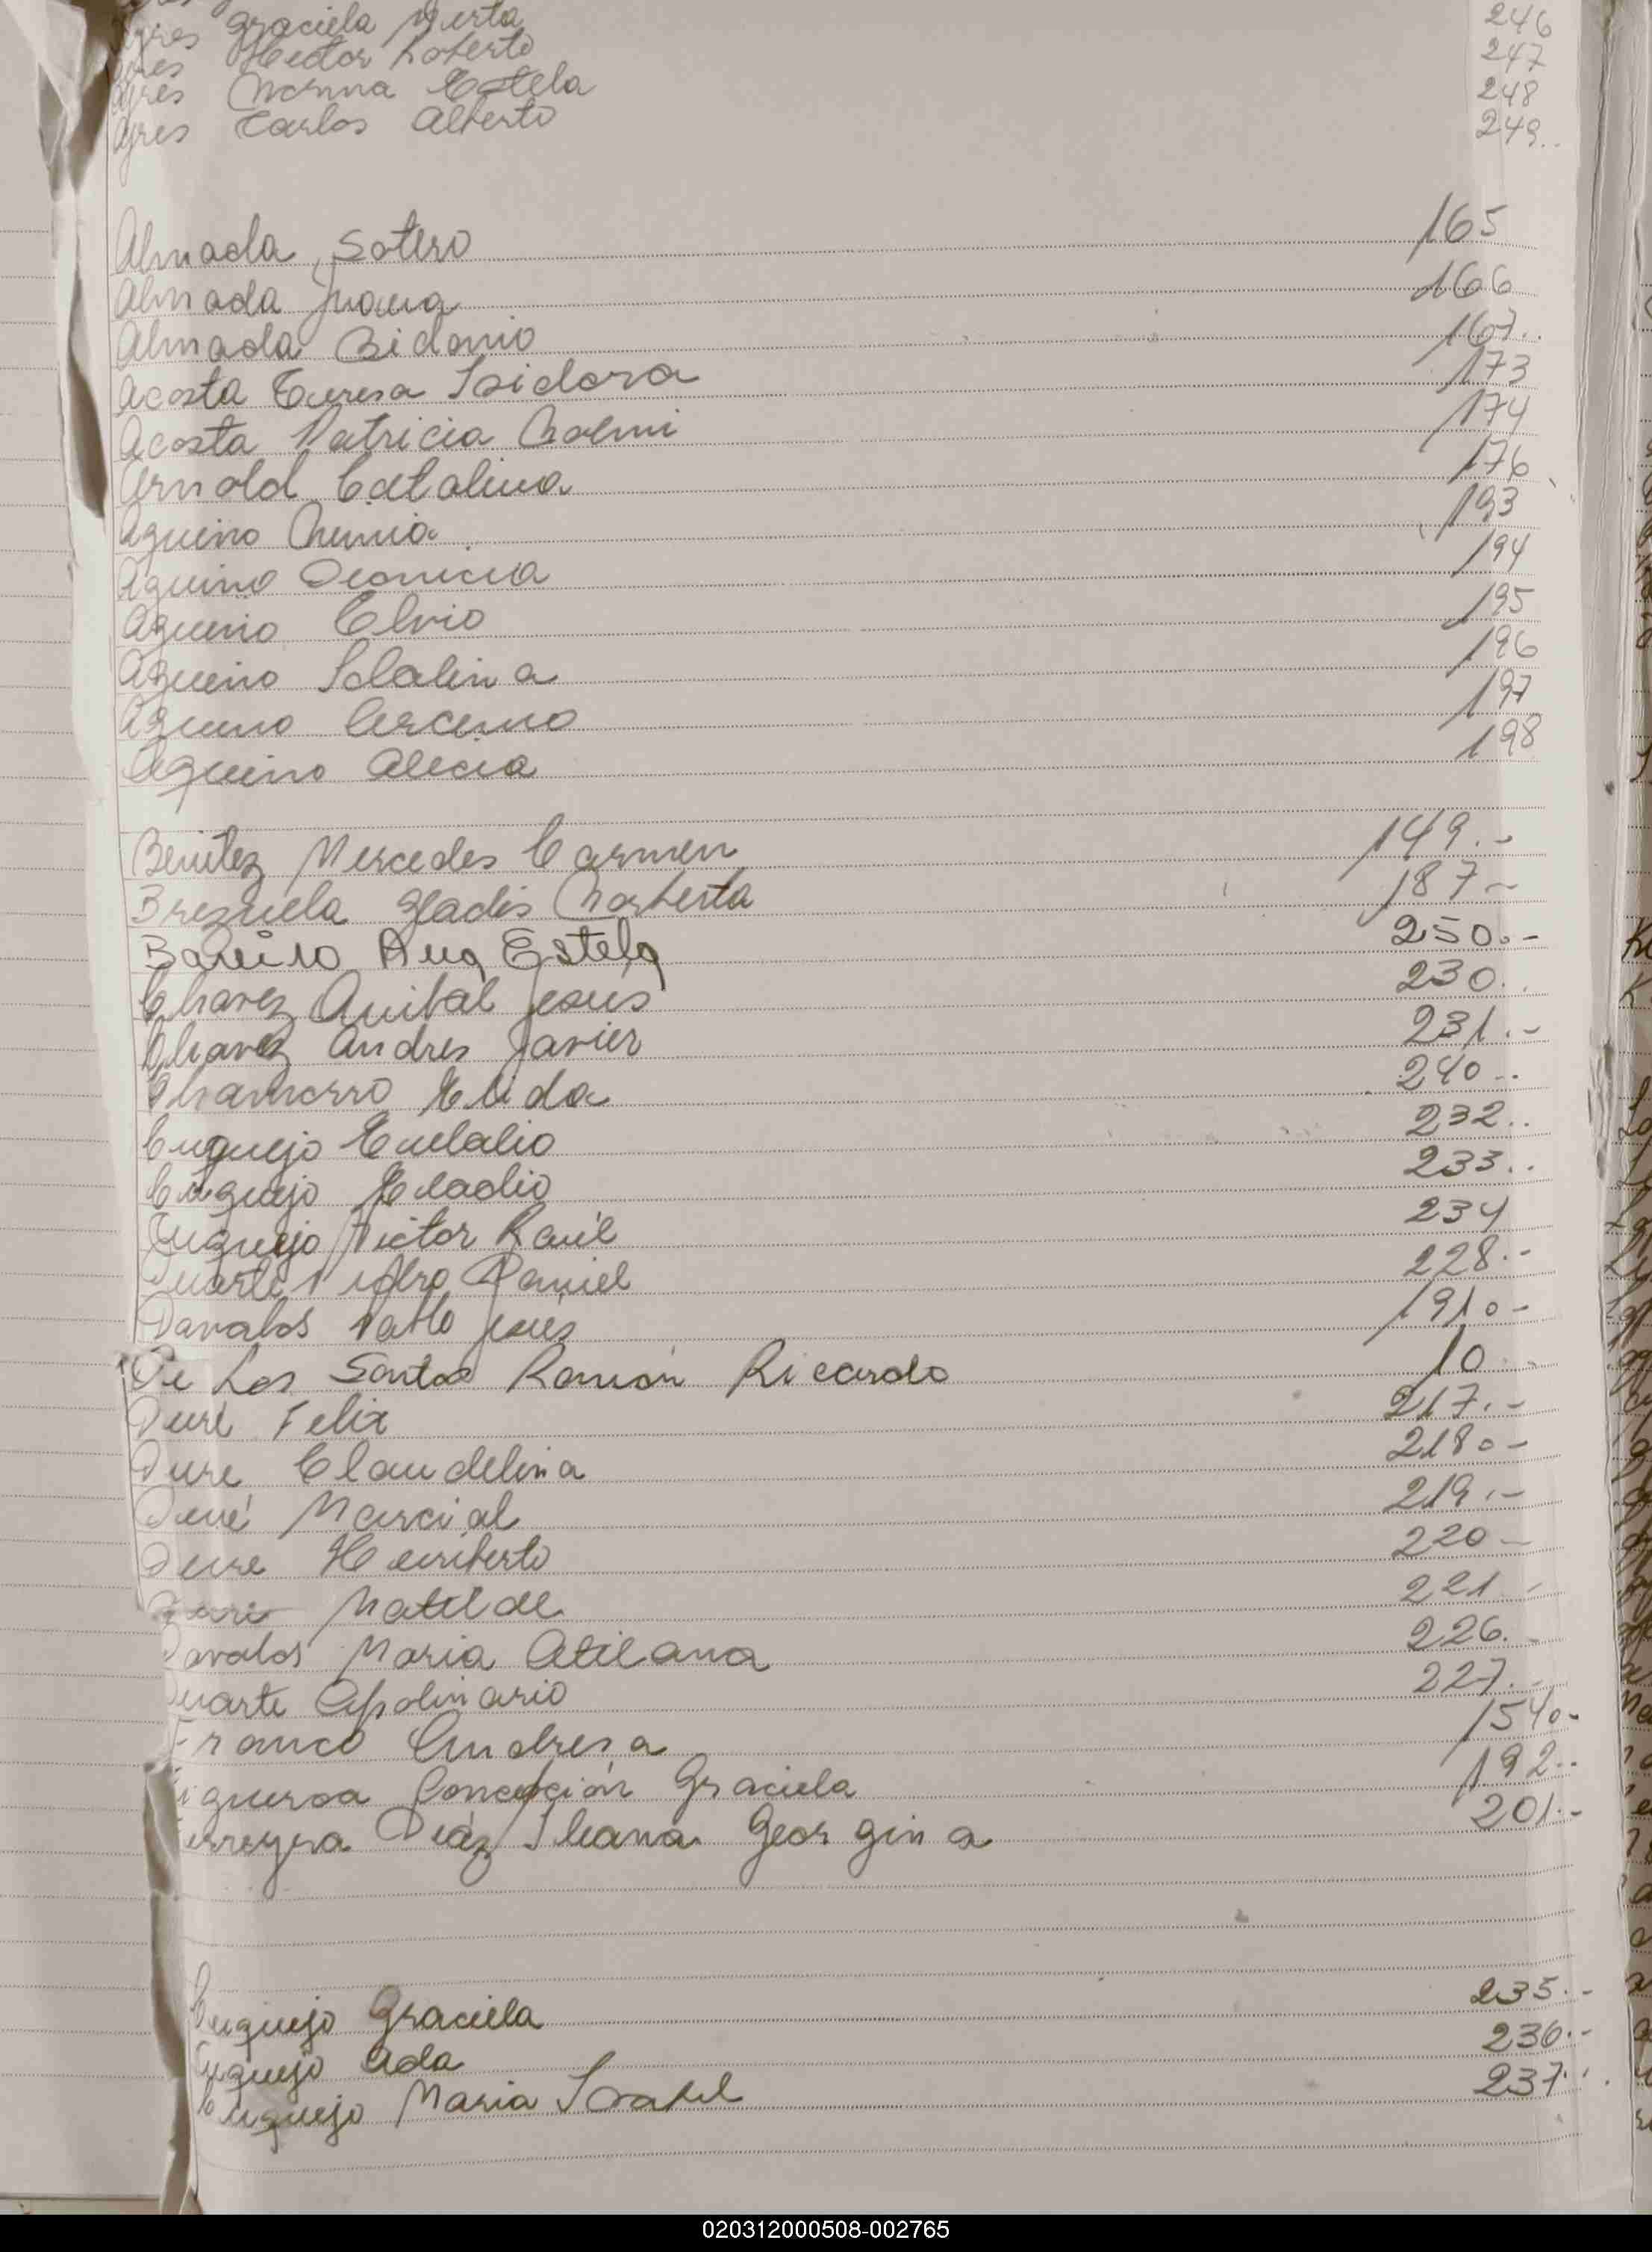 Ayres Graciela Mirta 246
Ayres Hector Roberto 247
Ayres Norma Estela 248
Ayres Carlos Alberto 249..
Almada, Sotero 165
Almada Juana 166
Almada Sidonio 167..
Acosta Teresa Isidora 173
Acosta Patricia Noemi 174
Arnold Catalina 176
Aquino 193
Aquino Dionicia 194
Aquino Elvio 195
Aquino Idalina 196
Aquino 197
Aquino Alicia 198
Benitez Mercedes Carmen 149.-
Brezuela Gladis Norberta 187-
Bareiro Ana Estela 250.-
Chavez Anibal Jesus 230..
Chavez Andres Javier 231.-
Chamorro Elida 240..
Cuquejo Eulalio 232..
Cuquejo Eladio 233..
Cuquejo Victor Raúl 234
Duarte Pedro Daniel 228.-
Davalos Pablo Jesús 191.-
De Los Santos Ramón Ricardo 10
Duré Felix 217.-
Dure Claudelina 218.-
Duré Marcial 219.-
Dure Heriberto 220-
Dure Matilde 221-
Davalos Maria Atilana 226.
Duarte Apolinario 227.-
Franco Andresa 154.-
Figueroa Concepción Graciela 192..
Ferreyra Diáz Ileana Georgina 201.-
Cuquejo Graciela 235.-
Cuquejo Ada 236.-
Cuquejo Maria Isabel 237..
020312000508-002765